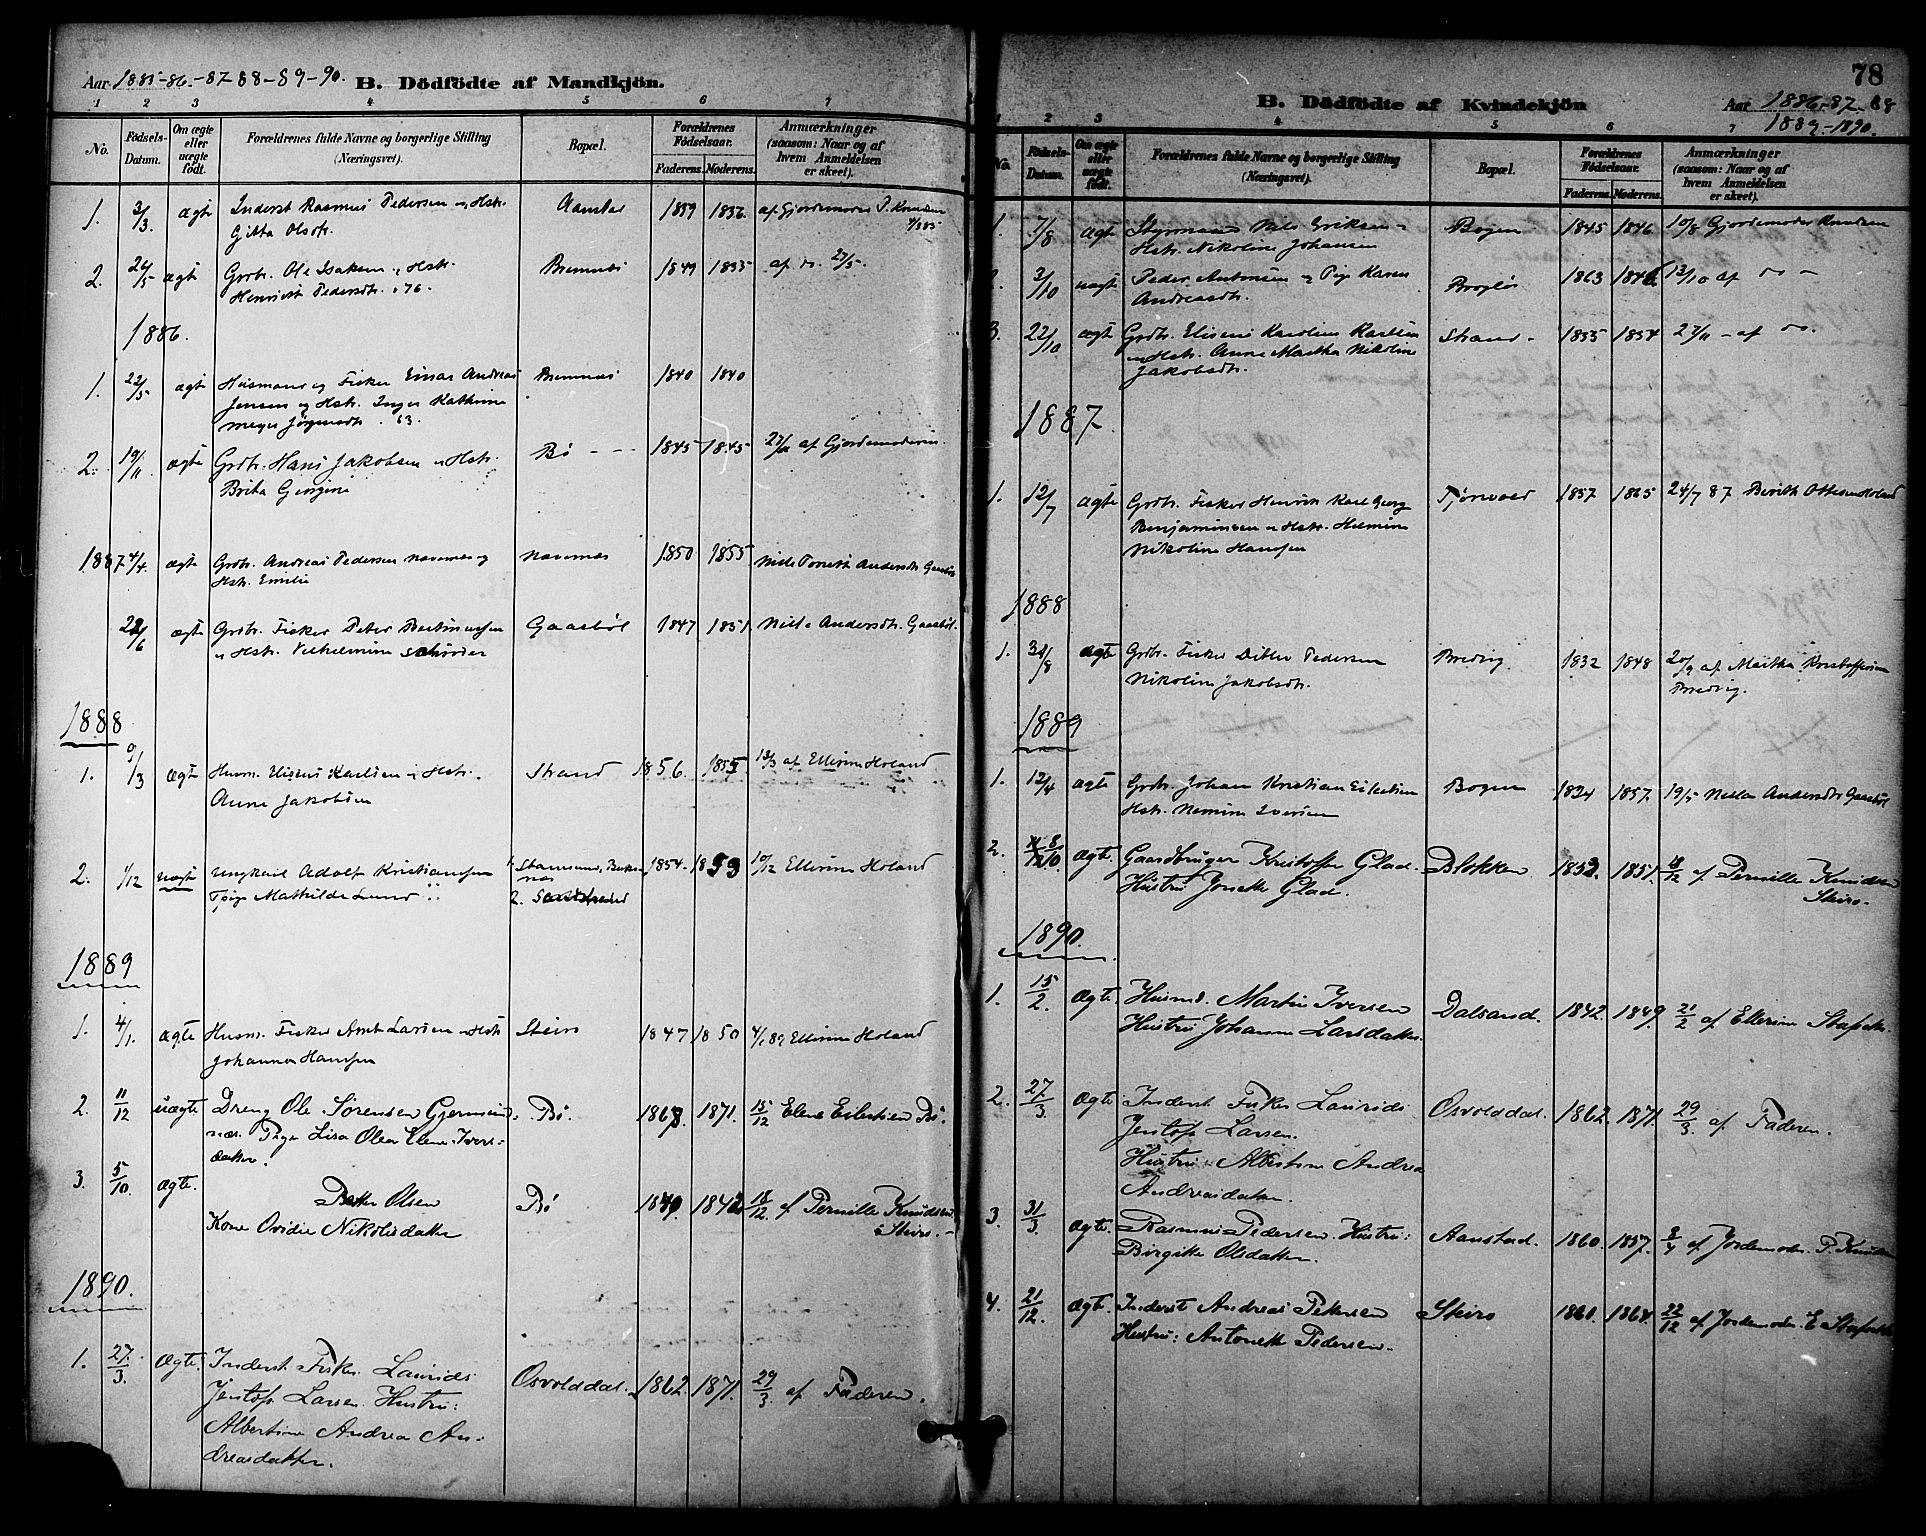 Aar 1885-86-87-88-89-90. B. Dödfödte af Mandkjön.
1 2 3 4 5 6 7
No. Födsels-Datum. Om ægte eller uægte födt. Forældrenes fulde Navne og borgerlige Stilling (Næringsvei). Bopæl. Forældrenes Födselsaar. Faderens. Moderens. Anmærkninger (saasom: Naar og af hvem Anmeldelsen er skeet).
1. 3/3. ægte Inderst Rasmus Pedersen og Hstr. Aanstad 1859 1856 af Gjordemoder P. Knudsen
Gitta Olsdtr.
2. 26/5 ægte Grdbr. Ole Isaksen og Hstr. Bremnes 1849 1855 af do. 27/5.
Henriette Pedersdtr.
1886.
1. 22/5 ægte Husmand og Fisker Einar Andreas Bremnes 1840 1840
Jensen og Hstr. Inger Kathrine
Meyer Jørgensdtr.
2. 19/11 ægte Grdbr. Hans Jakobsen og Hstr. Bø 1845 1845 27/11 af Gjordemoderen
Brita Gurine
1887 4/4. ægte Grdbr. Andreas Pedersen og 1850 1855 Andersdtr. Gaasbøl
Hstr. Emilie
22/6 ægte Grdbr. Fisker Peter Gaasbøl 1847 1851 Andersdtr. Gaasbøl
og Hstr. Vilhelmine Schrøder
1888
1. 9/3 ægte Husm. Eliseus Karlsen og Hstr. Strand 1856. 1855 13/3 af Ellerine Holand
Anne Jakobsen
2. 1/12 uægte Ungkarl Adolf Kristiansen 1. Stamsund, 1854. 1853 10/12 Ellerine Holand
Pige Mathilde Lund 2.
1889
1. 4/1. ægte Husm. Fisker Arnt Larsen og Hstr. Steiro 1847 1850 4/1 89 Ellerine Holand
Johanna Hansen
2. 11/12 uægte Dreng Ole Sørensen Bø. 1868. 1871. 15/12 Elene Eilertsen Bø.
Pige Lisa Olea Elene Ivers-
datter.
3. 5/10 ægte. Peder Olsen Bø 1849. 1842 18/12. af Pernille Knudsen
Kone Ovidie Nikolaisdatter Steiro.
1890.
1. 27/3. Ægte. Inderst Fisker Laurids Osvolddal. 1862. 1871. 29/3. af Faderen.
Jentoft Larsen Hustru:
Albertine Andrea An-
dreasdatter.
78
B. Dödfödte af Kvindekjön Aar 1886-87-88
1889-1890.
1 2 3 4 5 6 7
No. Födsels-Datum. Om ægte eller uægte födt. Forældrenes fulde Navne og borgerlige Stilling (Næringsvei). Bopæl. Forældrenes Födselsaar. Faderens. Moderens. Anmærkninger (saasom: Naar og af hvem Anmeldelsen er skeet).
1. 7/8 ægte Styrmand Nils Eriksen og Bogen 1845 1846 10/8 Gjordemoder Knudsen
Hstr. Nikoline Johansen
2. 3/10 uægte Peder Antonsen og Pige Karen 1863 1846 13/10 af do -
Andreasdtr.
3. 22/10 ægte Grdbr. Eliseus Karolius Karlsen Strand 1855 1854 27/11 - af do.
og Hstr. Anne Martha Nikoline
Jakobsdtr.
1887.
1. 12/7 ægte Grdbr. Fisker Henrik Karl Georg 1857 1865 24/7 87 Berith Ottesen Holand
Benjaminsen og Hstr. Helmine
Nikoline Hansen
1888
1. 30/8 ægte Grdbr. Fisker Ditlev Pedersen Bredvig. 1832 1848 20/9 af Martha Kristoffersen
Nikoline Jakobsdtr. Bredvig.
1889
1. 12/4 ægte Grdbr. Johan Kristian Eilertsen Bogen 1834 1857. 19/5 Andersdtr Gaasbøl
Hstr. Iversen
2. 8/10 Ægte. Gaardbruger Kristoffer Glad. Blokken 1853. 1851. 18/12 af Pernille Knudsen
Hustru Jonette Glad. Steiro.
1890.
1. 15/2 Ægte. Husmd. Martin Iversen Dalsand. 1842. 1849. 21/2 af Ellerine
Hustru Johanna Larsdatter.
2. 27/3. Ægte Inderst Fisker Laurids Osvolddal. 1862. 1871. 29/3. af Faderen.
Jentoft Larsen.
Hustru: Albertine Andrea
Andreasdatter.
3. 31/3 Ægte. Rasmus Pedersen. Hustru: Aanstad. 1860. 1857. 8/4 af Jordemoder P. Knudsen
Birgitte Olsdatter.
4. 21/12. Ægte. Inderst Andreas Petersen Steiro 1860. 1864. 22/12 af Jordemoder E.
Hustru: Antonette Pedersen.